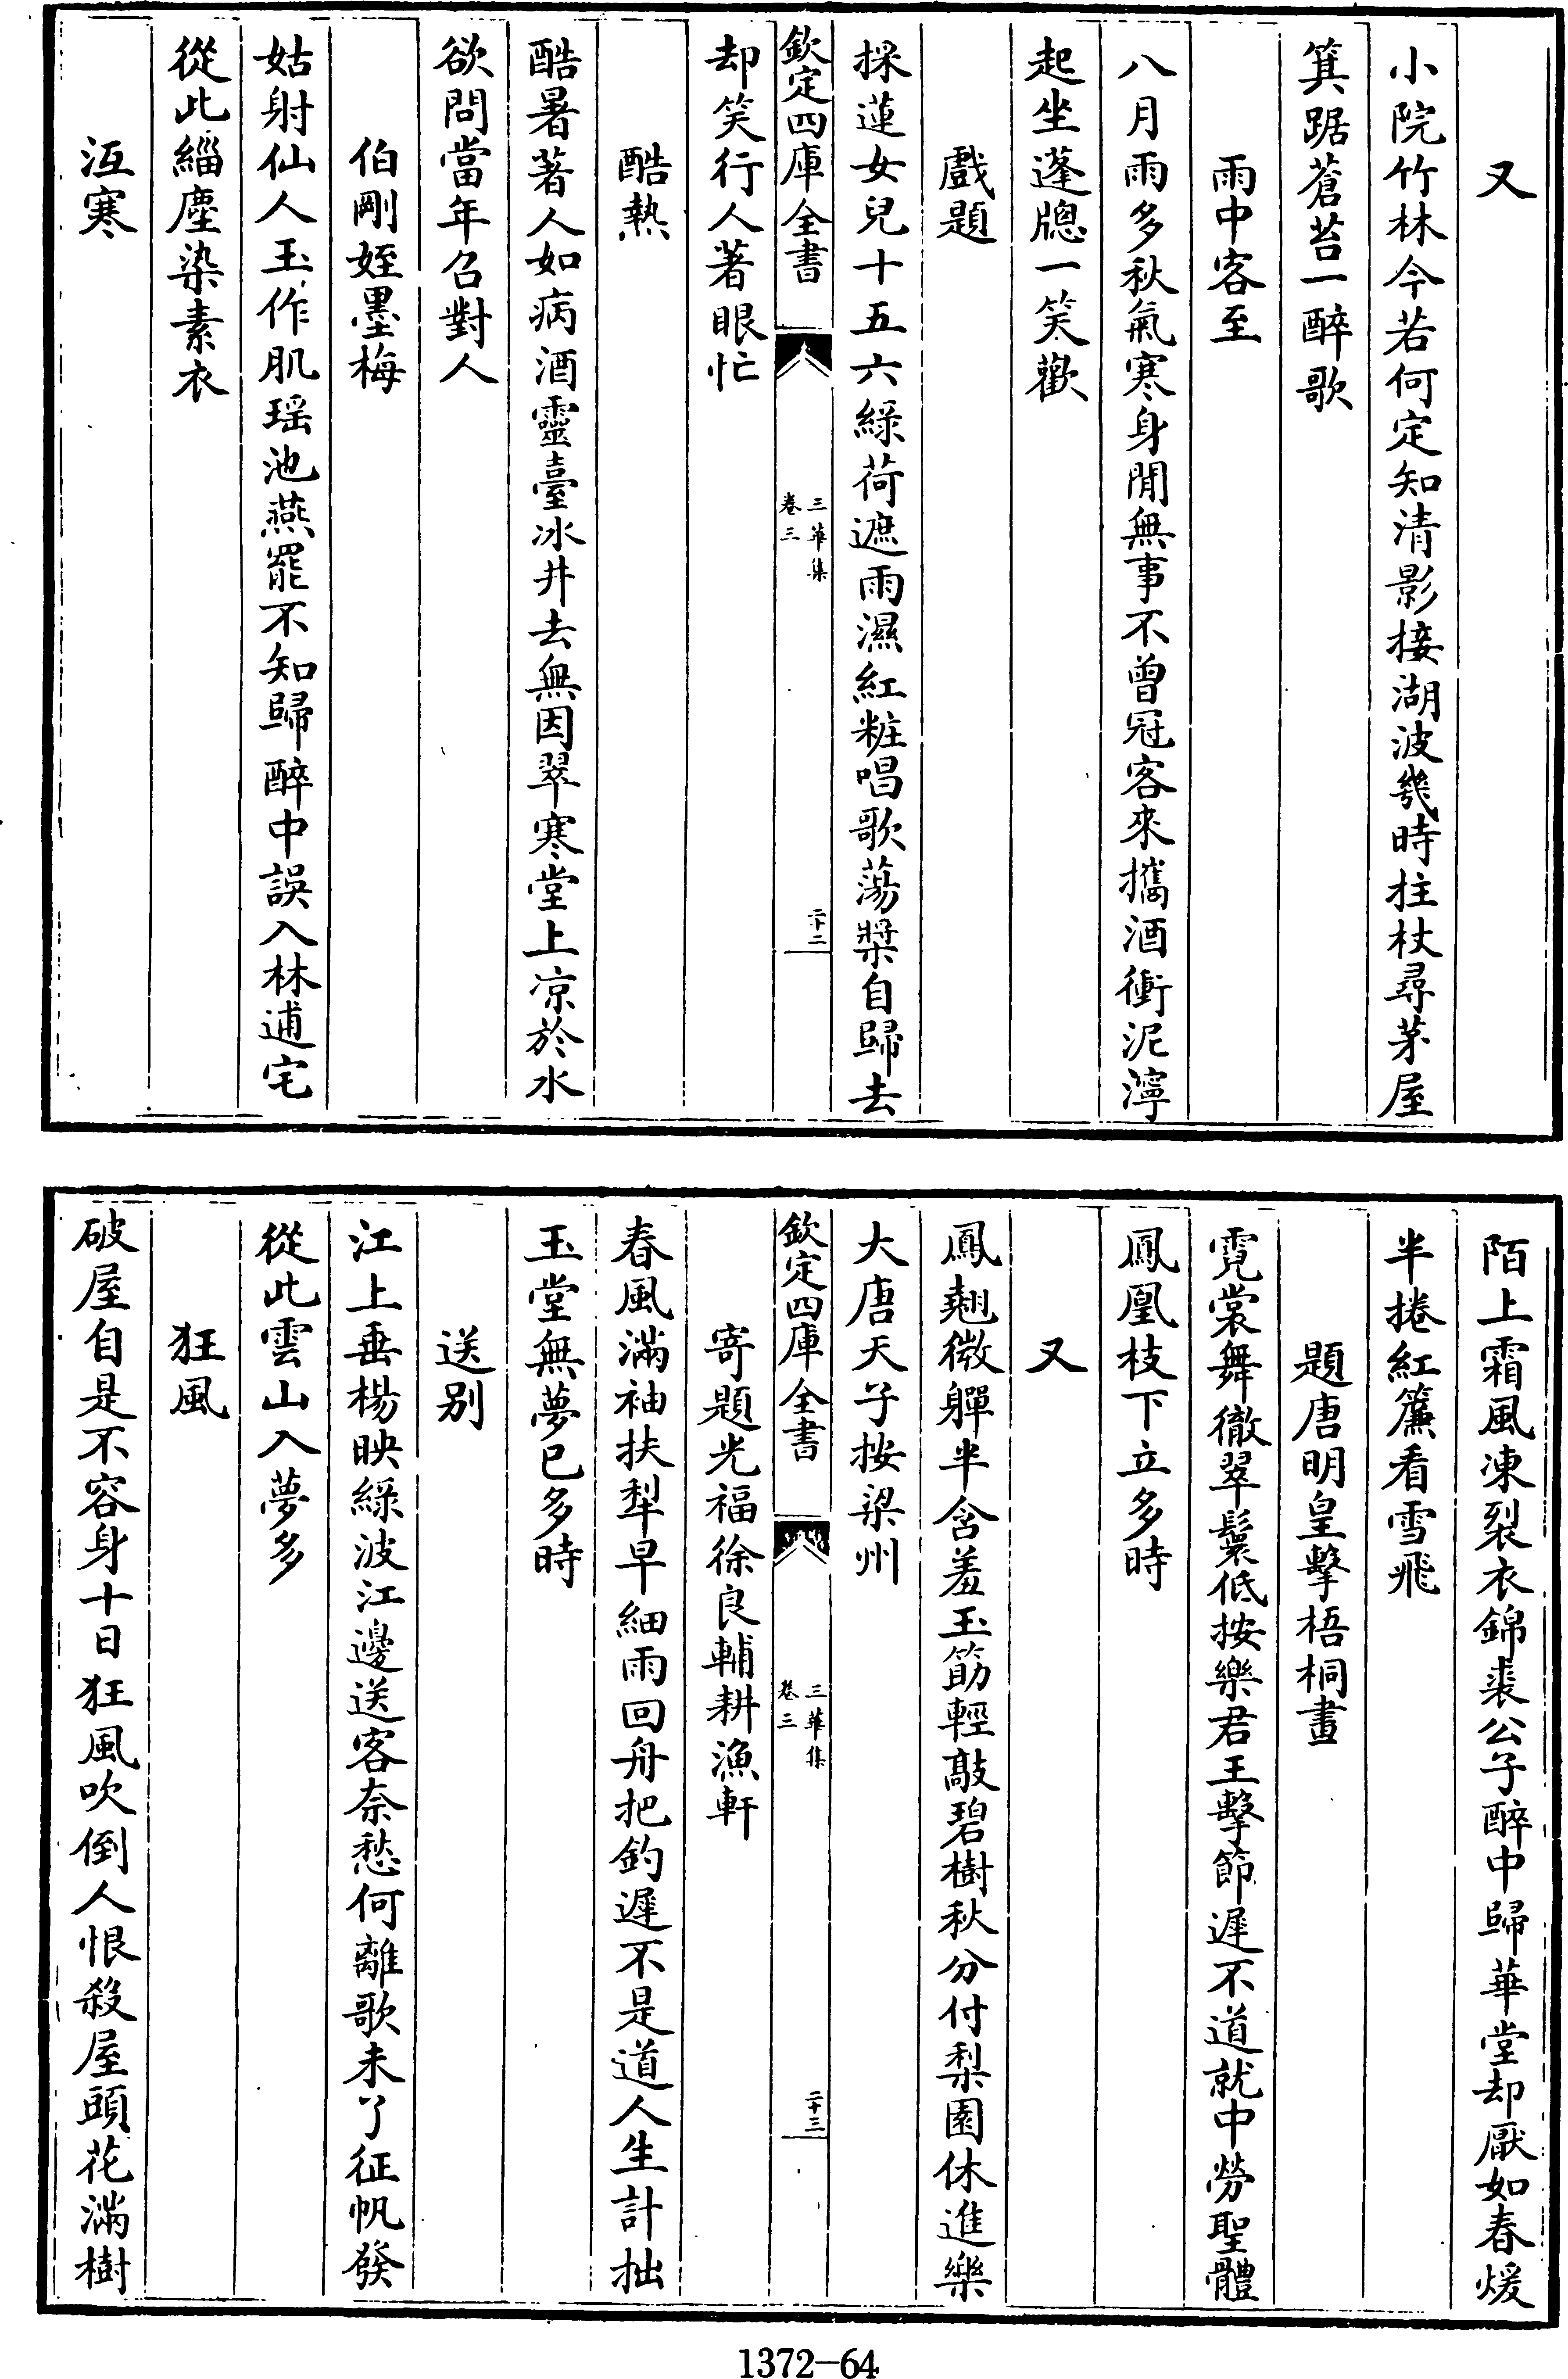 又
小院竹林今若何定知清影接湖波幾時拄杖尋茅屋
箕踞蒼苔一醉歌
雨中客至
八月雨多秋氣寒身閒無事不曾冠客來攜酒衝泥濘
起坐蓬牕一笑歡
戲題
採蓮女兒十五六綠荷遮雨濕紅粧唱歌蕩槳自歸去
欽定四庫全書
三華集
卷三
二十二
却笑行人著眼忙
酷熱
酷暑著人如病酒靈臺冰井去無因翠寒堂上凉於水
欲問當年召對人
伯剛姪墨梅
姑射仙人玉作肌瑶池燕罷不知歸醉中誤入林逋宅
從此緇塵染素衣
沍寒
陌上霜風凍裂衣錦裘公子醉中歸華堂却厭如春煖
半捲紅簾看雪飛
題唐明皇擊梧桐畫
霓裳舞徹翠鬟低按樂君王擊節遲不道就中勞聖體
鳳凰枝下立多時
又
鳳翹微軃半含羞玉筯輕敲碧樹秋分付梨園休進樂
大唐天子按梁州
欽定四庫全書
三華集
卷三
二十三
寄題光福徐良輔耕漁軒
春風滿袖扶犁早細雨回舟把釣遲不是道人生計拙
玉堂無夢已多時
送别
江上垂楊映綠波江邊送客奈愁何離歌未了征帆發
從此雲山入夢多
狂風
破屋自是不容身十日狂風吹倒人恨殺屋頭花滿樹
1372-64